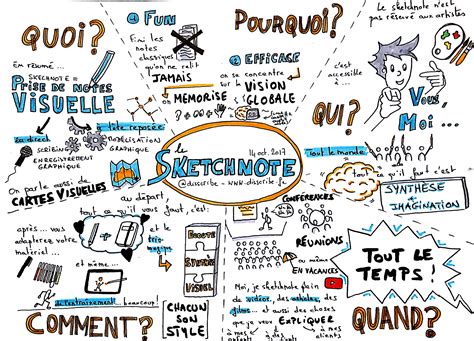 QUOI?
EN RÉSUMÉ ...
SKETCHNOTE =
PRISE DE NOTES
VISUELLE
en direct
à tête reposée
SCRIBING
ENREGISTREMENT
GRAPHIQUE
MODÉLISATION
GRAPHIQUE
On parle aussi de
CARTES VISUELLES
POURQUOI?
① FUN
Fini les
notes
classiques
qu'on ne relit
JAMAIS
② EFFICACE
MÉMORISE
on se concentre
sur la
VISION
GLOBALE
Le sketchnote n'est
pas réservé aux artistes
c'est
accessible
à ...
QUI?
Vous,
Moi ...
Tout le monde
tout ce qu'il faut c'est
SYNTHÈSE
+
IMAGINATION
le
SKETCHNOTE
14 oct. 2017
@disscribe - www.disscribe.fr
COMMENT?
au départ,
tout ce qu'il vous faut, c'est:
après ... vous
adapterez votre
matériel ...
et même ...
de l'entraînement... beaucoup!
et le
trio
magique
ÉCOUTE
SYNTHÈSE
VISUEL
CHACUN
SON
STYLE
QUAND?
CONFÉRENCES
RÉUNIONS
ou même
EN VACANCES
TOUT LE
TEMPS!
Moi, je sketchnote plein
de vidéos, des articles, des
films... et aussi des choses
que je veux EXPLIQUER
à mes
enfants
à mes
amis
à mes